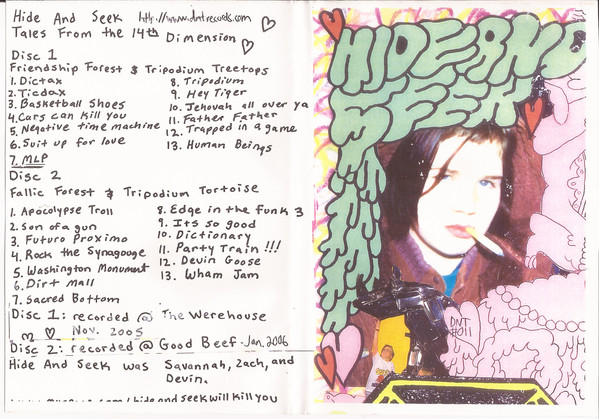 Hide And Seek http://www.dntrecords.com
Tales From the 14th Dimension
Disc 1
Friendship Forest & Tripodium Treetops
1. Dictax
2. Ticdax
3. Basketball Shoes
4. Cars can kill you
5. Negative time machine
6. Suit up for love
7. MLP
8. Tripodium
9. Hey Tiger
10. Jehovah all over ya
11. Father Father
12. Trapped in a game
13. Human Beings
Disc 2
Fallic Forest & Tripodium Tortoise
1. Apocolypse Troll
2. Son of a gun
3. Futuro Proximo
4. Rock the Synagouge
5. Washington Monument
6. Dirt mall
7. Sacred Bottom
8. Edge in the funk 3
9. Its so good
10. Dictionary
11. Party Train !!!
12. Devin Goose
13. Wham Jam
Disc 1: recorded @ The Werehouse
Nov. 2005
Disc 2: recorded @ Good Beef - Jan. 2006
Hide And Seek was Savannah, Zach, and
Devin.
/hideandseekwillkillyou
HIDE AND
SEEK
DNT
#011